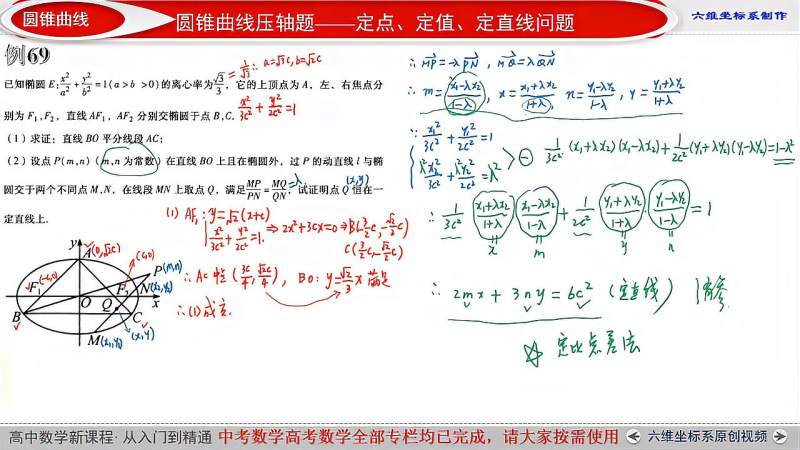 圆锥曲线
圆锥曲线压轴题——定点、定值、定直线问题
六维坐标系制作
例69
已知椭圆 E: x²/a² + y²/b² = 1(a>b >0)的离心率为 √3/3, 它的上顶点为 A, 左、右焦点分
= 1/√3 ∴ a=√3c, b=√2c
别为 F₁,F₂, 直线 AF₁, AF₂ 分别交椭圆于点 B,C.
x²/3c² + y²/2c² = 1
(1) 求证: 直线 BO 平分线段 AC;
(2) 设点 P(m,n)(m,n 为常数) 在直线 BO 上且在椭圆外, 过 P 的动直线 l 与椭
圆交于两个不同点 M,N, 在线段 MN 上取点 Q, 满足 MP/PN = MQ/QN, 试证明点 Q 恒在一
=λ
(x,y)
定直线上.
(1) AF₁: y=√2(x+c)
x²/3c² + y²/2c² = 1. ⇒ 2x²+3cx=0 ⇒ B(-3/2c, -√2/2c)
C(3/2c, -√2/2c)
∴ AC 中点 (3c/4, √2c/4), BO: y=√2/3 x 满足
∴ (1) 成立.
y
A(0,√2c)
(-c,0)
(c,0)
P(m,n)
F₁
O
F₂
N(x₂,y₂)
x
B
Q
C
M(x₁,y₁)
(x,y)
∴ MP=-λPN, MQ=λQN
∴ m= (x₁-λx₂)/(1-λ), x= (x₁+λx₂)/(1+λ) n= (y₁-λy₂)/(1-λ), y= (y₁+λy₂)/(1+λ)
∵ x₁²/3c² + y₁²/2c² = 1
λ²x₂²/3c² + λ²y₂²/2c² = λ²
⊖ 1/3c² (x₁+λx₂)(x₁-λx₂)+ 1/2c² (y₁+λy₂)(y₁-λy₂)=1-λ²
∴ 1/3c² · (x₁+λx₂)/(1+λ) · (x₁-λx₂)/(1-λ) + 1/2c² · (y₁+λy₂)/(1+λ) · (y₁-λy₂)/(1-λ) = 1
x m y n
∴ 2mx+3ny=6c² (定直线) 消参
☆ 定比点差法
高中数学新课程·从入门到精通
中考数学高考数学全部专栏均已完成，请大家按需使用
六维坐标系原创视频